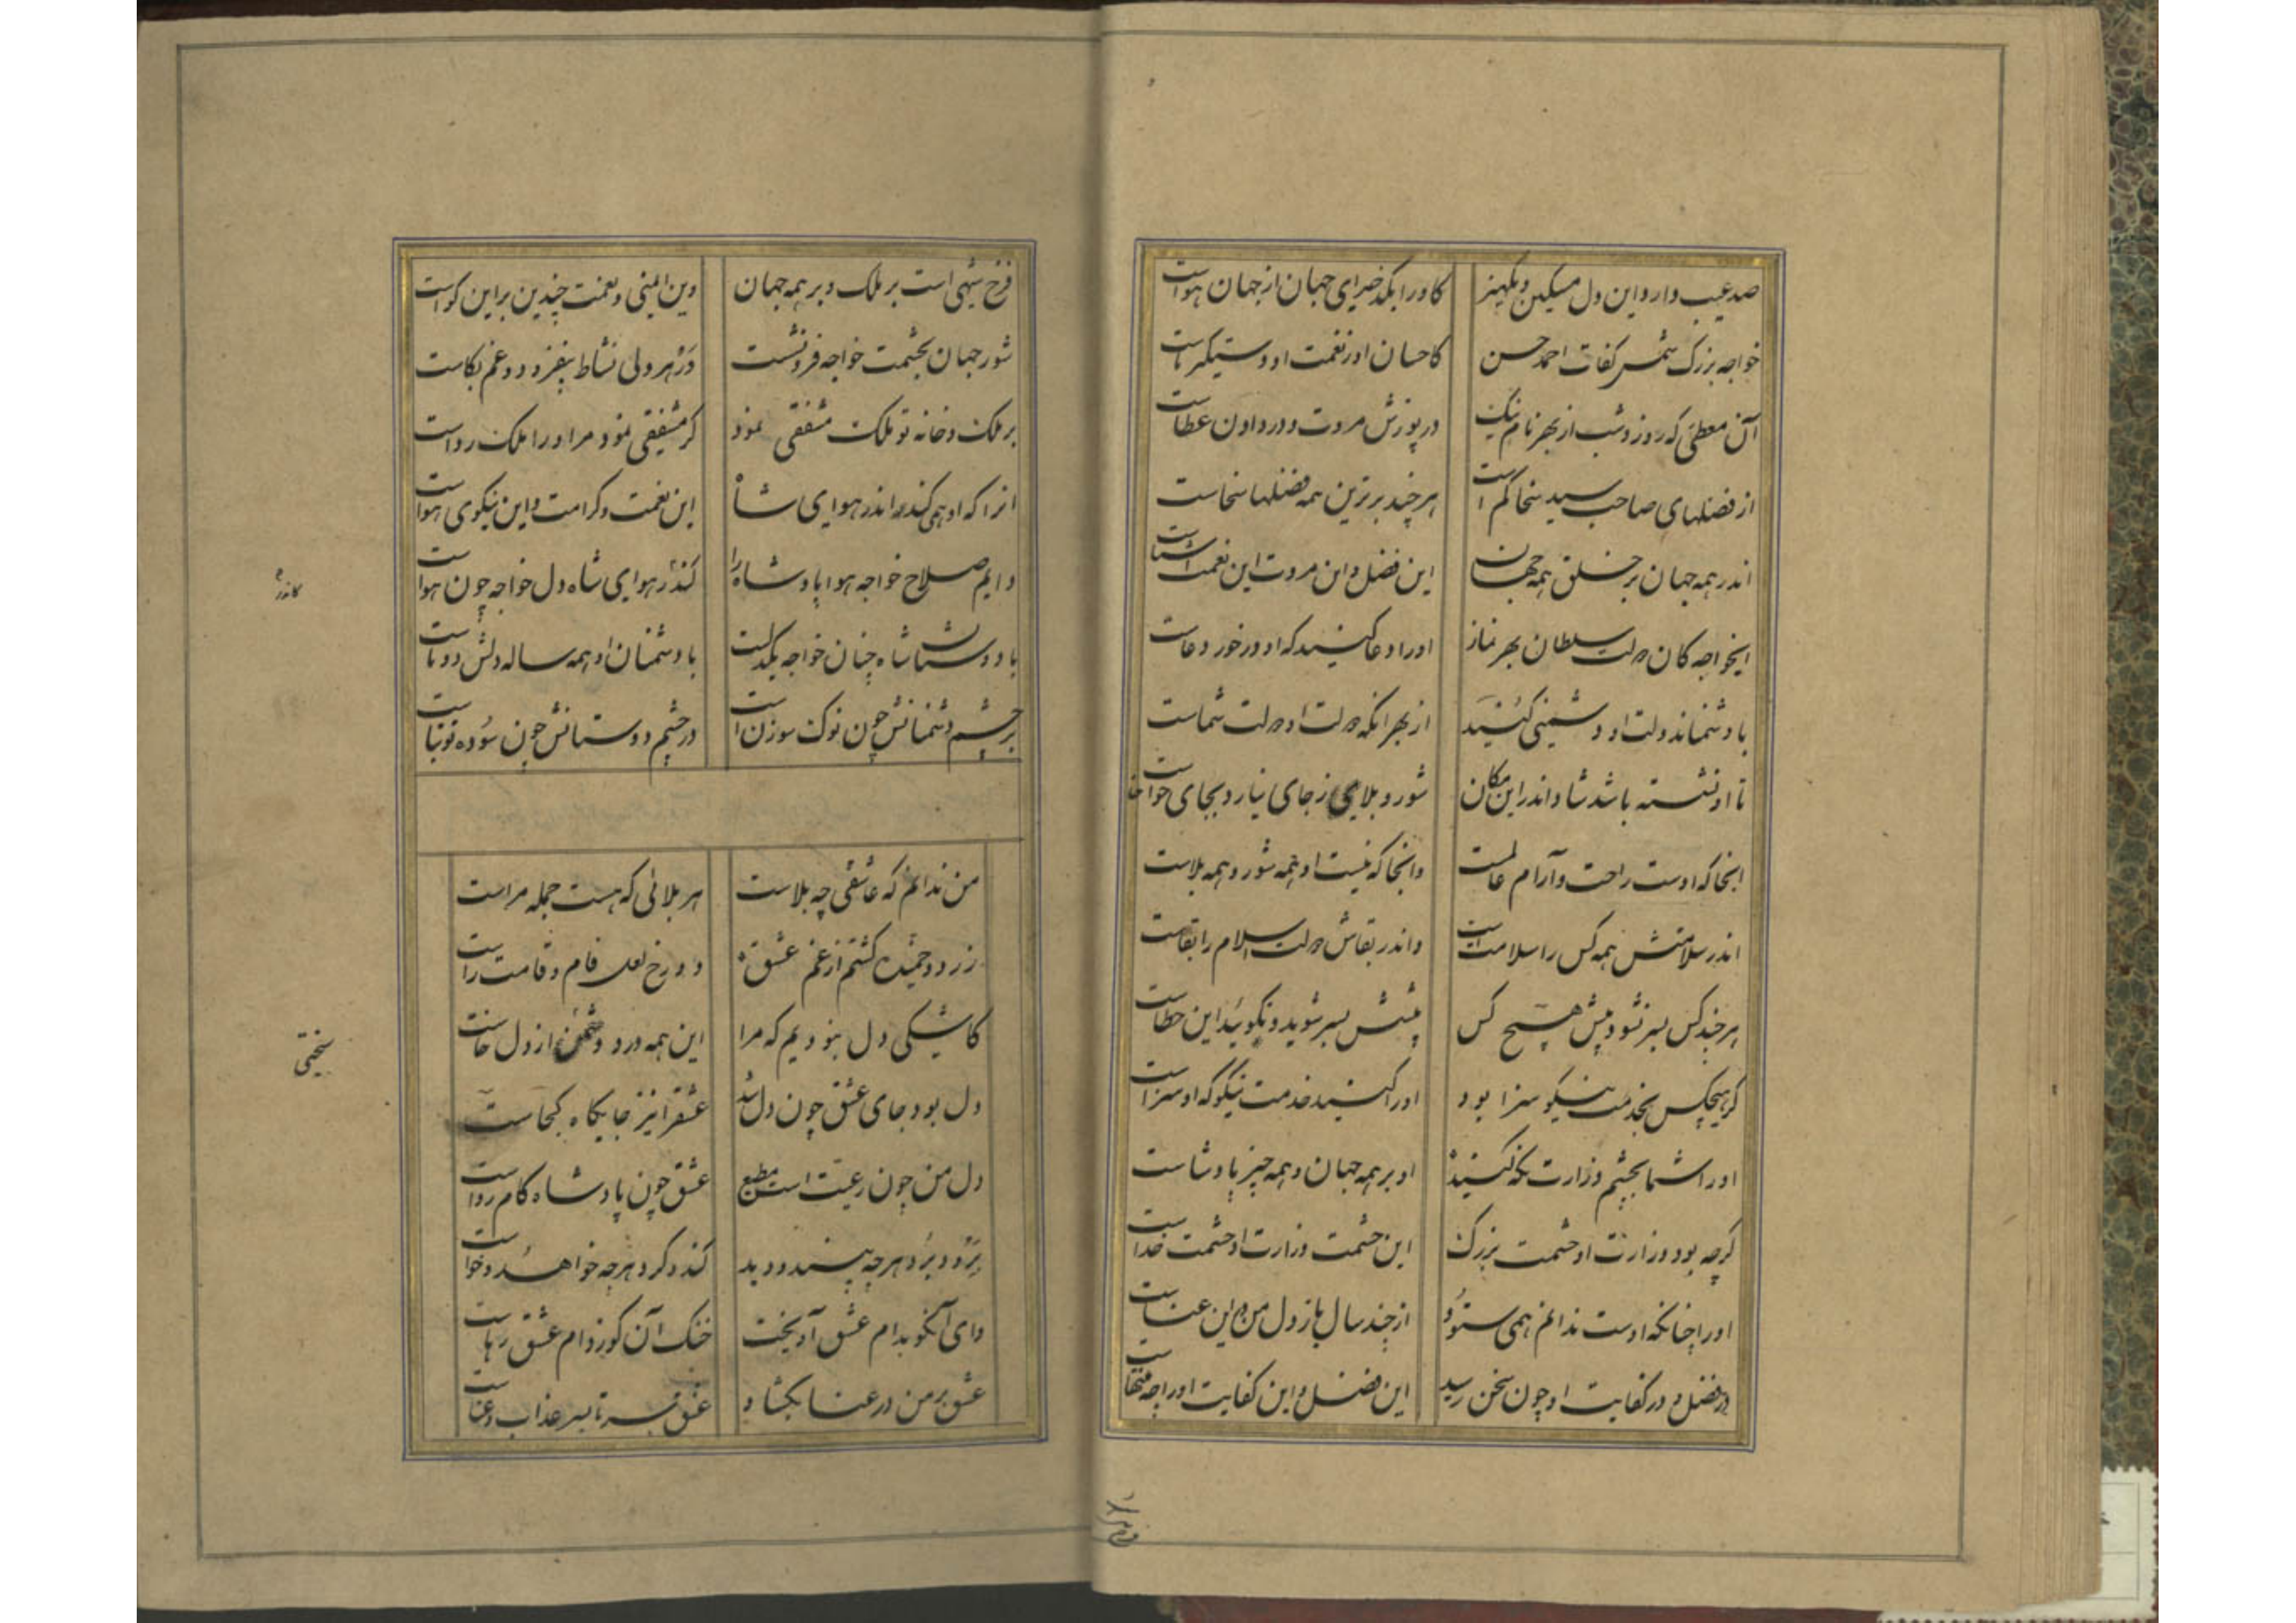 صد عیب دارد این دل مسکین و یکهنر کاو را بکدخدای جهان از جهان هواست
خواجه بزرک شمس کفات احمد حسن کاحسان او و نعمت او دستیکر ماست
آن معطی که روز و شب از بهر نام نیک در پوزش مروت و در دادن عطاست
از فضلهای صاحب سید سخا کم است هر چند برترین همه فضلها سخاست
اندر همه جهان بر خلق همه جهان این فضل و این مروت این نعمت
ایخواجه کان دولت سلطان بهر نماز او را دعا کنید که او در خور دعاست
با دشمنان دولت او دشمنی کنید از بهر انکه دولت او دولت شماست
تا او نشسته باشد شاد اندر این مکان شور و بلا ز جای نیارد بجای خواست
اینجا که اوست راحت و آرام عالمست وانجا که نیست او همه شور و همه بلاست
اندر سلامتش همه کس را سلامت است و اندر بقاش دولت اسلام را بقاست
هر چند کس بسر نشود پیش هیچ کس پیشش بسر شوید و نکوئید این خطاست
کر هیچکس بخدمت نیکو سزا بود او را کنید خدمت نیکو که او سزاست
او را شما بچشم وزارت نکه کنید او بر همه جهان و همه چیز پادشاست
کرچه بود وزارت او حشمت بزرک این حشمت وزارت او حشمت خداست
او را چنانکه اوست ندانم همی ستود از چند سال باز دل من در این عناست
در فضل و در کفایت او چون سخن رسید این فضل و این کفایت او را چه منتهاست
فرخ پیی است بر ملک و بر همه جهان وین ایمنی و نعمت چندین براین کواست
شور جهان بحشمت خواجه فرو نشست در هر دلی نشاط بیفزود و غم بکاست
بر ملک و خانه تو ملک مشفقی نمود کر مشفقی نمود مر او را ملک رواست
انرا که او همی کند اندر هوای شاه این نعمت و کرامت و این نیکوی هواست
دایم صلاح خواجه هوا پادشاه را کندر هوای شاه دل خواجه چون هواست
کاندر
با دوستان شاه چنان خواجه یکدلست با دشمنان او همه ساله دلش دوتاست
بر چشم دشمنانش چون نوک سوزن است در چشم دوستانش چون سوده توتیاست
من ندانم که عاشقی چه بلاست هر بلائی که هست جمله مراست
زرد و خمیده کشتم از غم عشق دو رخ لعل فام و قامت راست
کاشیکی دل نبودیم که مرا این همه درد و از دل خاست
سختی
دل بود جای عشق چون دل شد عشق را نیز جایکاه کجاست
دل من چون رعیت است مطیع عشق چون پادشاه کام رواست
برد و برد هرچه بیند و دید کند و کرد هرچه خواهد و خواست
وای آنکو بدام عشق آویخت خنک آن کو ز دام عشق رهاست
عشق بر من در عنا بکشاد عشق سر تا بسر عذاب و عناست